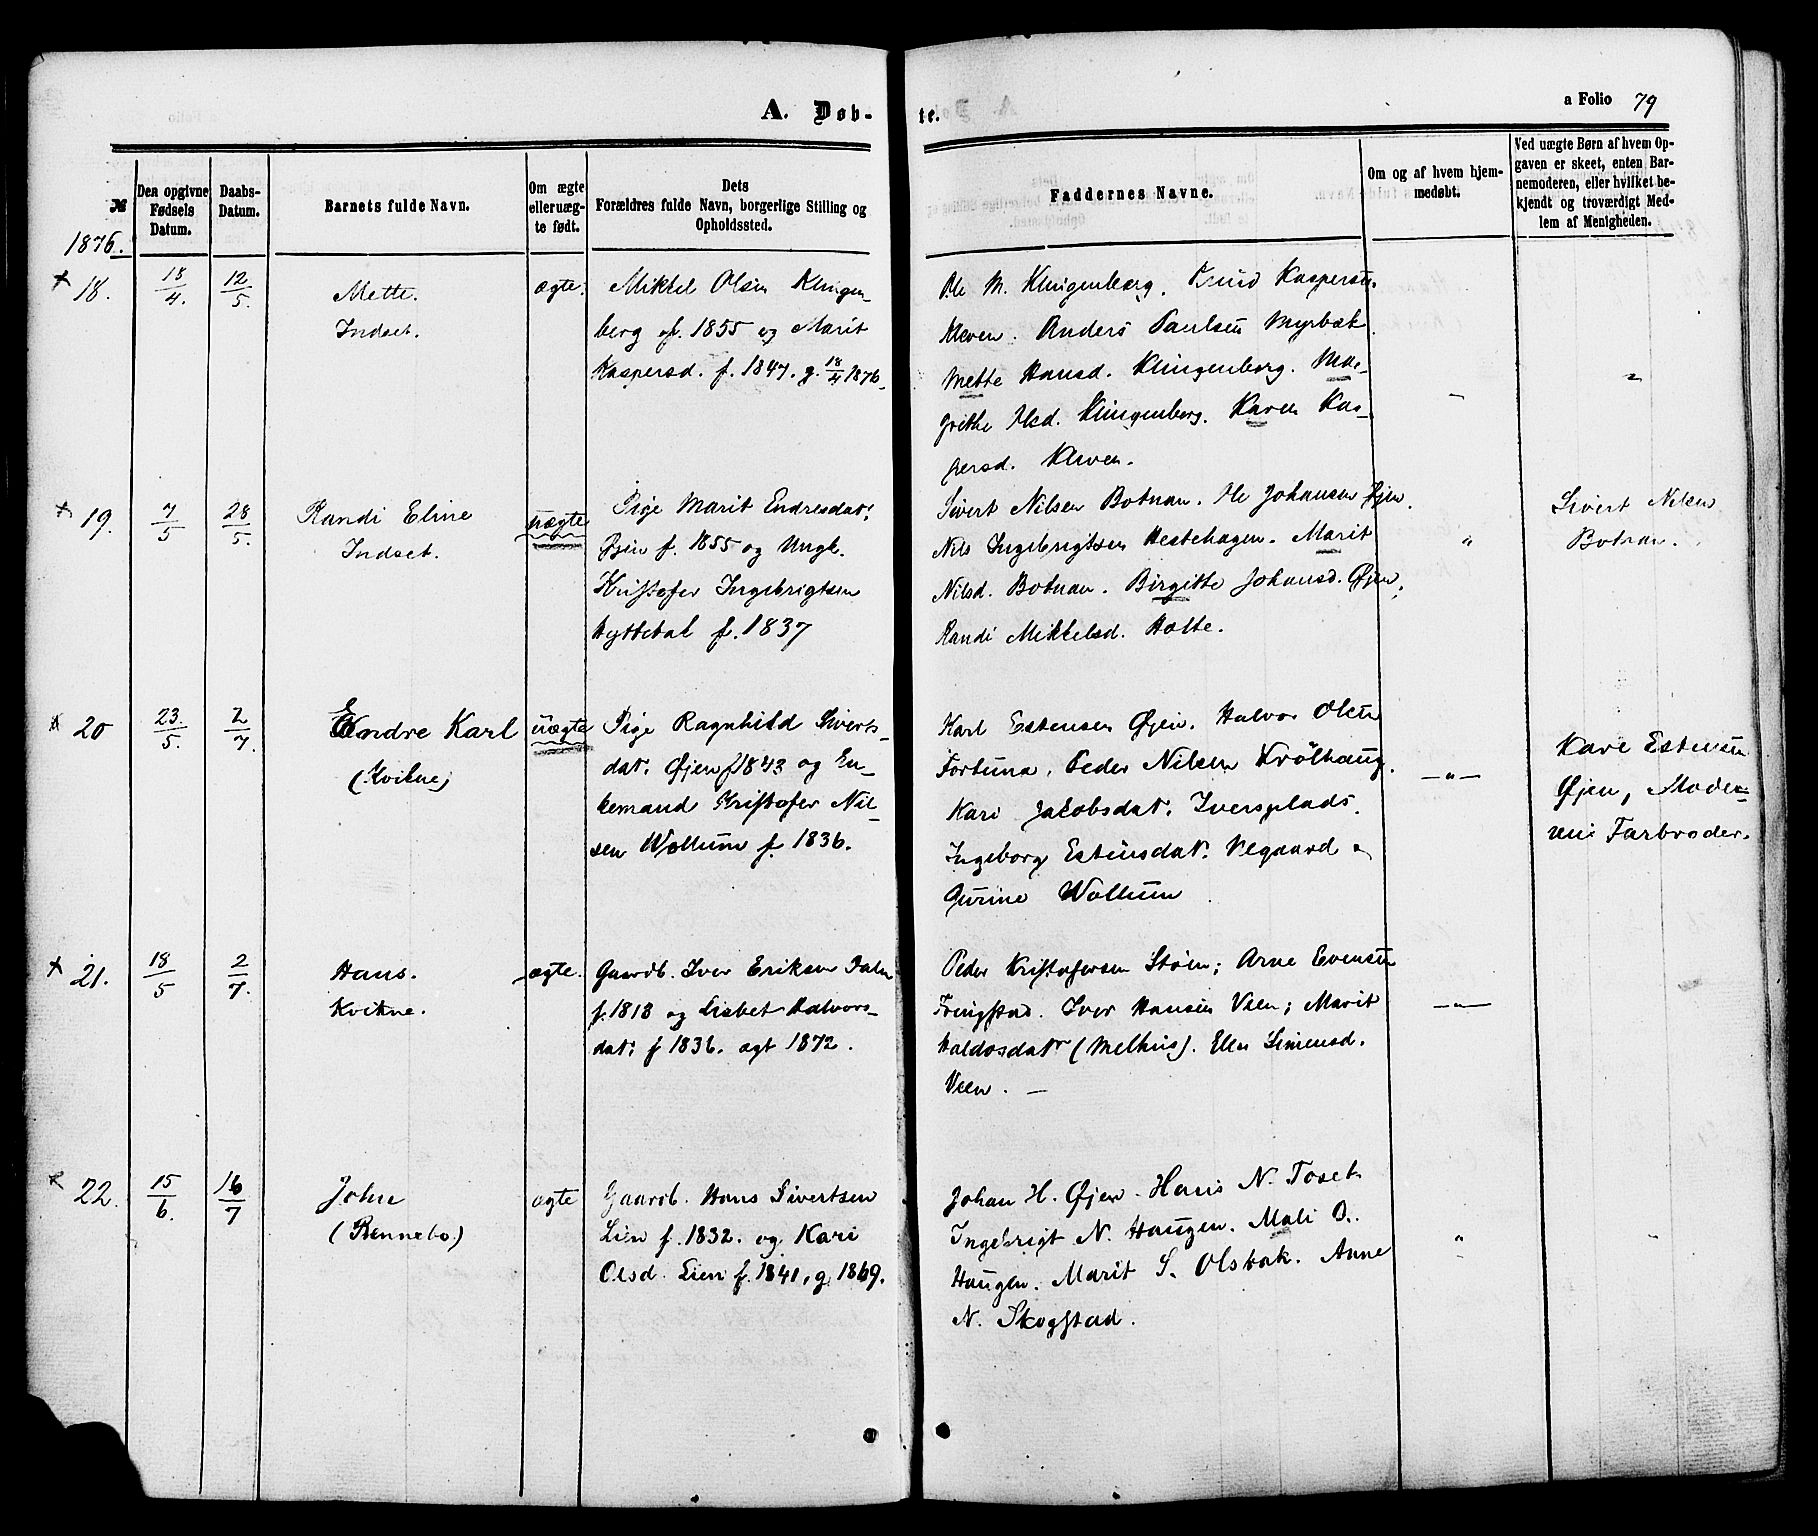 A. Døb-
te.
a Folio 79
№
Den opgivne
Fødsels
Datum.
Daabs-
Datum.
Barnets fulde Navn.
Om ægte
eller uæg-
te født.
Dets
Forældres fulde Navn, borgerlige Stilling og
Opholdssted.
Faddernes Navne.
Om og af hvem hjem-
medøbt.
Ved uægte Børn af hvem Op-
gaven er skeet, enten Bar-
nemoderen, eller hvilket be-
kjendt og troværdigt Med-
lem af Menigheden.
1876.
18. 18/4 12/5.
Mette.
Indset.
ægte.
Mikkel Olsen Klingen-
berg f. 1855 og Marit
Kaspersd. f. 1847. g. 18/4 1876.
Ole M. Klingenberg. Knud Kaspersen
Kleven. Anders Paulsen Myrbæk
Mette Hansd. Klingenberg. Mar-
grethe Olsd. Klingenberg. Karen Kas-
persd. Kleven.
19. 7/5 28/5.
Randi Eline
Indset.
uægte
Pige Marit Endresdat.
Øjen f. 1855 og Ungk.
Kristofer Ingebrigtsen
Hyttebak f. 1837
Sivert Nilsen Botnan. Ole Johansen Øjen.
Nils Ingebrigtsen Hestehagen. Marit
Nilsd. Botnan. Birgitte Johansd. Øjen,
Randi Mikkelsd. Holte.
"
Sivert Nilsen
Botnan.
20 23./5. 2/7.
Endre Karl
(Kvikne)
uægte
Pige Ragnhild Siverts-
dat. Øjen f 1843 og En-
kemand Kristofer Nil-
sen Wollum f. 1836.
Karl Estensen Øjen. Halvor Olsen
Fortuna. Peder Nilsen Krölhaug.
Kari Jakobsdat. Iversplads.
Ingeborg Estensdat. Vegaard &
Gurine Wollum.
—"—
Kare Estensen
Øjen, Moder-
ens Farbroder.
21. 18/5 2/7.
Hans.
Kvikne.
ægte.
Gaardb. Iver Eriksen Dalen
f. 1818 og Lisbet Halvors-
dat. f 1836. ægt 1872.
Peder Kristofersen Stöen; Arne Evensen
Fringstad. Iver Hansen Veen; Marit
Haldosdatr (Melhus). Elen Simensd.
Veen. —
—"—
22. 15/6. 16/7
John
(Rennebo.)
ægte
Gaardb. Hans Sivertsen
Lien f. 1832. og Kari
Olsd. Lien f. 1841, g. 1869.
Johan H. Øjen. Hans N. Toset.
Ingebrigt N. Haugen. Mali O.
Haugen. Marit S. Olsbak. Anne
N. Skogstad.
"